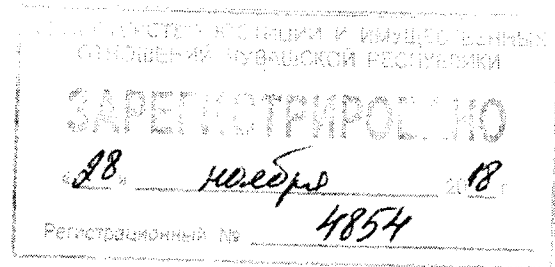 МИНИСТЕРСТВО ЮСТИЦИИ И ИМУЩЕСТВЕННЫХ
ОТНОШЕНИЙ ЧУВАШСКОЙ РЕСПУБЛИКИ
ЗАРЕГИСТРИРОВАНО
"28" ноября 2018 г
Регистрационный № 4854